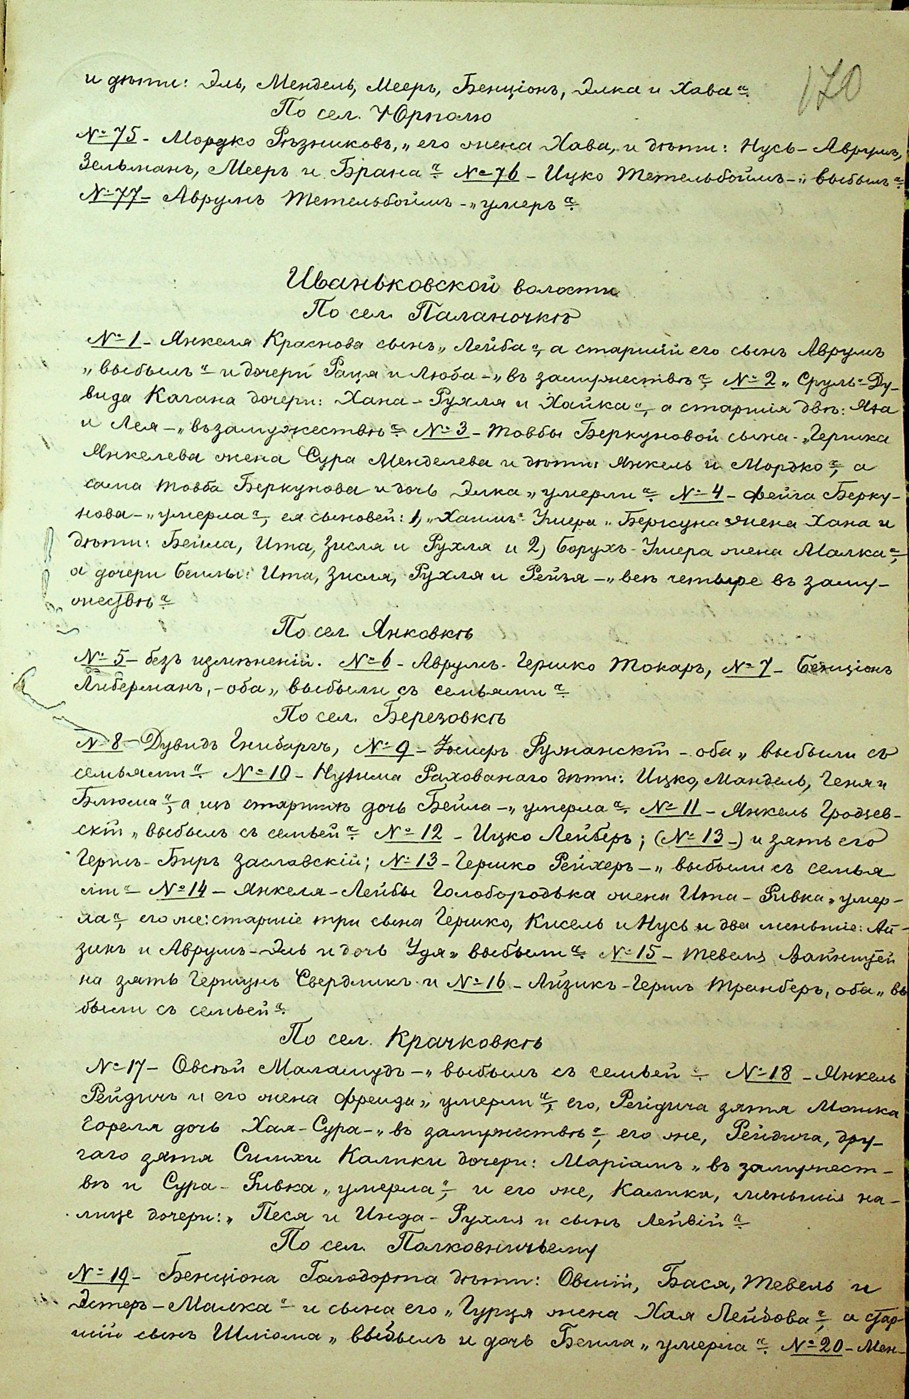 170
и дѣти: Эль, Мендель, Мееръ, Бенціонъ, Элка и Хава".
По сел. Юрполю
№ 75 - Мордко Рѣзниковъ, „его жена Хава, и дѣти: Нусь-Аврумъ,
Зельманъ, Мееръ и Брана". № 76 - Ицко Тетельбоймъ - „выбылъ".
№ 77 - Аврумъ Тетельбоймъ - „умеръ".
Иваньковской волости
По сел. Паланочкѣ
№ 1 - Янкеля Краснова сынъ „Лейба", а старшій его сынъ Аврумъ
„выбылъ" и дочери Рація и Люба - „въ замужествѣ". № 2 „Сруль-Ду-
вида Кагана дочери: Хана-Рухля и Хайка", а старшія двѣ:
и Лея - „въ замужествѣ". № 3 - Товбы Беркуновой сына - „Гершка
Янкелева жена Сура Менделева и дѣти: Янкель и Мордко", а
сама Товба Беркунова и дочь Элка „умерли". № 4 - Фейга Берку-
нова - „умерла", ея сыновей: 1, „Хаимъ-Умера „Беркуна жена Хана и
дѣти: Бейла, Ита, Зисля и Рухля и 2, Борухъ-Умера жена Малка",
а дочери Бейлы: Ита, Зисля, Рухля и Рейзя - „всѣ четыре въ заму-
жествѣ"
По сел. Янковкѣ
№ 5 - безъ измѣненій. № 6 - Аврумъ-Гершко Токаръ, № 7 - Бенціонъ
Либерманъ, - оба „выбыли съ семьями".
По сел. Березовкѣ
№ 8 - Дувидъ Гнибаргъ, № 9 - Ружанскій - оба „выбыли съ
семьями". № 10 - Нухима Рахованаго дѣти: Ицко, Мандель, Геня и
Блюма", а ихъ старшая дочь Бейла - „умерла". № 11 - Янкель Гродзев-
скій „выбылъ съ семьей". № 12 - Ицко Лейберъ; (№ 13 -) и зять его
Гершъ-Беръ Заславскій; № 13 - Гершко Рейхеръ - „выбыли съ семья
ми" № 14 - Янкеля-Лейбы Голобородька жена Ита-Ривка „умер-
ла", его же: старшіе три сына Гершко, Кисель и Нусь и два меньшіе: Ай-
зикъ и Аврумъ-Эль и дочь Удя „выбыли". № 15 - Тевеля Вайнштей
на зять Гершунъ Свердликъ и № 16 - Айзикъ-Гершъ Транберъ, оба „вы
были съ семьей".
По сел. Крачковкѣ
№ 17 - Овсѣй Маламудъ - „выбылъ съ семьей". № 18 - Янкель
Рейдичъ и его жена Фрейда „умерли", его, Рейдича зятя Мошка
Сореля дочь Хая-Сура - „въ замужествѣ", его же, Рейдича, дру-
гаго зятя Симхи Калики дочери: Маріамъ „въ замужест-
вѣ и Сура-Ривка „умерла", и его же, Калики, меньшія на-
лице дочери: „Песя и Инда-Рухля и сынъ Лейвій".
По сел. Полковничьему
№ 19 - Бенціона Голодорта дѣти: Овшій, Бася, Тевель и
Эстеръ-Малка" и сына его „Гурця жена Хая Лейбова", а стар-
шій сынъ Шліома „выбылъ и дочь Бейла „умерла". № 20 - Мен-